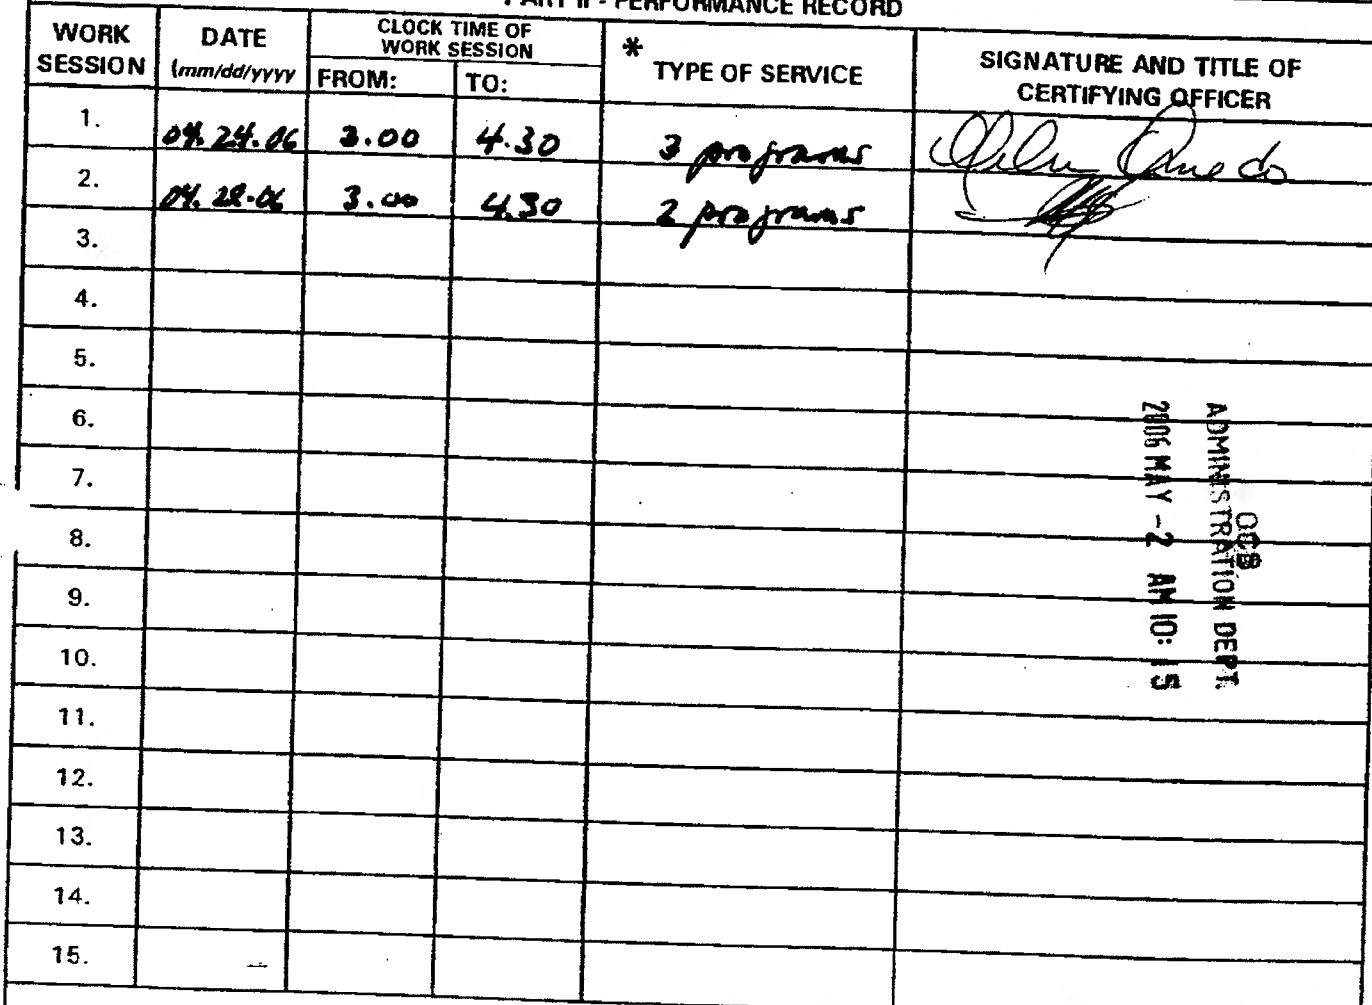 PART II - PERFORMANCE RECORD
WORK SESSION
DATE (mm/dd/yyyy
CLOCK TIME OF WORK SESSION
FROM:
TO:
* TYPE OF SERVICE
SIGNATURE AND TITLE OF CERTIFYING OFFICER
1. 04.24.06 3.00 4.30 3 programs
2. 04.28.06 3.00 4.30 2 programs
3.
4.
5.
6.
7.
8.
9.
10.
11.
12.
13.
14.
15.
OCB
ADMINISTRATION DEPT.
2006 MAY -2 AM 10: 15